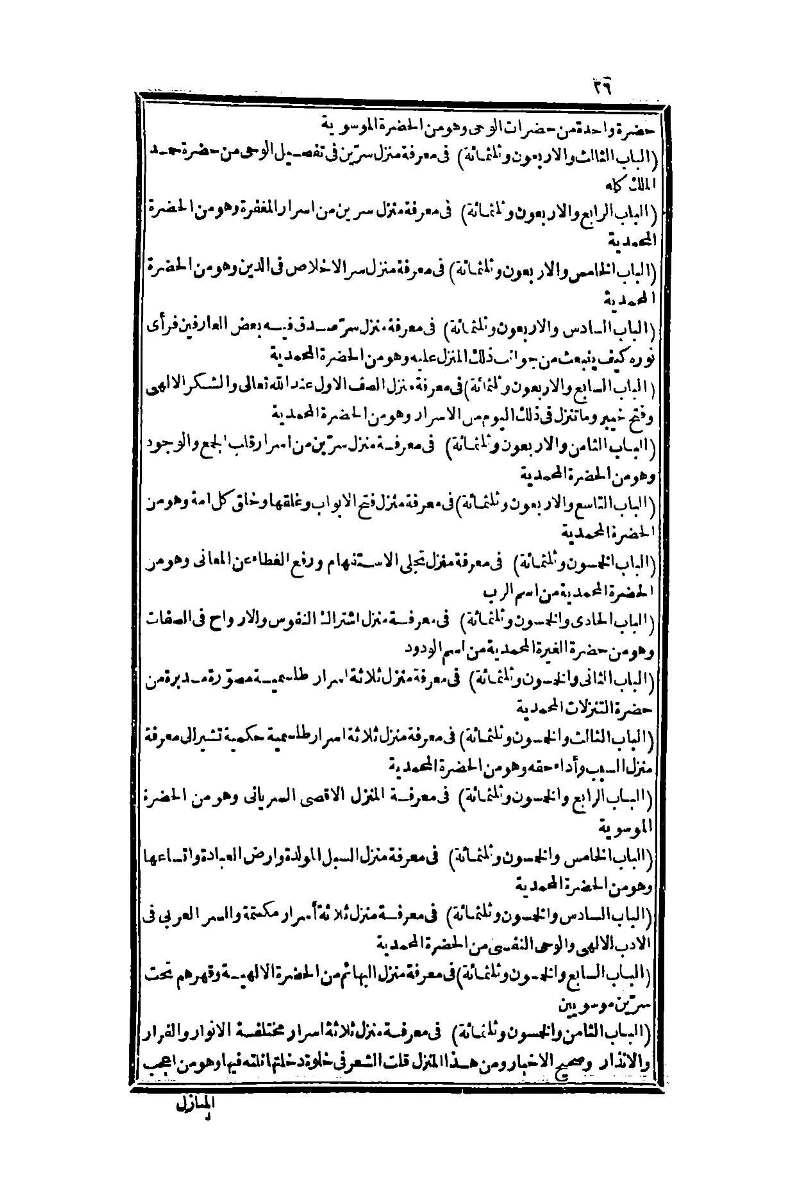 ٢٦
حضرة واحدة من حضرات الوحى وهو من الحضرة الموسوية
(الباب الثالث والاربعون وثلثمائة) فى معرفة منزل سرّين فى تفصيل الوحى من حضرة حمد
الملك كله
(الباب الرابع والاربعون وثلثمائة) فى معرفة منزل سرين من اسرار المغفرة وهو من الحضرة
المحمدية
(الباب الخامس والاربعون وثلثمائة) فى معرفة منزل سر الاخلاص فى الدين وهو من الحضرة
المحمدية
(الباب السادس والاربعون وثلثمائة) فى معرفة منزل سرّ صدق فيه بعض العارفين فرأى
نوره كيف ينبعث من جوانب ذلك المنزل عليه وهو من الحضرة المحمدية
(الباب السابع والاربعون وثلثمائة) فى معرفة منزل الصف الاول عند الله تعالى والشكر الالهى
وفتح خيبر وما تنزل فى ذلك اليوم من الاسرار وهو من الحضرة المحمدية
(الباب الثامن والاربعون وثلثمائة) فى معرفة منزل سرّين من اسرار قلب الجمع والوجود
وهو من الحضرة المحمدية
(الباب التاسع والاربعون وثلثمائة) فى معرفة منزل فتح الابواب وغلقها وخلق كل امة وهو من
الحضرة المحمدية
(الباب الخمسون وثلثمائة) فى معرفة منزل تجلى الاستفهام ورفع الغطاء عن المعانى وهو من
الحضرة المحمدية من اسم الرب
(الباب الحادى والخمسون وثلثمائة) فى معرفة منزل اشتراك النفوس والارواح فى الصفات
وهو من حضرة الغيرة المحمدية من اسم الودود
(الباب الثانى والخمسون وثلثمائة) فى معرفة منزل ثلاثة اسرار طلسمية مصوّرة مدبرة من
حضرة التنزلات المحمدية
(الباب الثالث والخمسون وثلثمائة) فى معرفة منزل ثلاثة اسرار طلسمية حكمية تشير الى معرفة
منزل السبب وأداء حقه وهو من الحضرة المحمدية
(الباب الرابع والخمسون وثلثمائة) فى معرفة المنزل الاقصى السريانى وهو من الحضرة
الموسوية
(الباب الخامس والخمسون وثلثمائة) فى معرفة منزل السبل المولدة وارض العبادة واتساعها
وهو من الحضرة المحمدية
(الباب السادس والخمسون وثلثمائة) فى معرفة منزل ثلاثة أسرار مكتتمة والسر العربى فى
الادب الالهى والوحى النفسى من الحضرة المحمدية
(الباب السابع والخمسون وثلثمائة) فى معرفة منزل البهائم من الحضرة الالهية وقهرهم تحت
سرّين موسويين
(الباب الثامن والخمسون وثلثمائة) فى معرفة منزل ثلاثة اسرار مختلفة الانوار والقرار
والانذار وصحيح الاخبار ومن هذا المنزل قلت الشعر فى خلوة دخلتها نلته فيها وهو من اعجب
المنازل